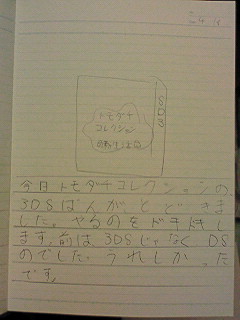 3DS
トモダチ
コレクション
今日トモダチコレクションの、
3DSばんがとどきま
した。やるのをドキドキし
ます。前は3DSじゃなくDS
のでした。うれしかった
です。